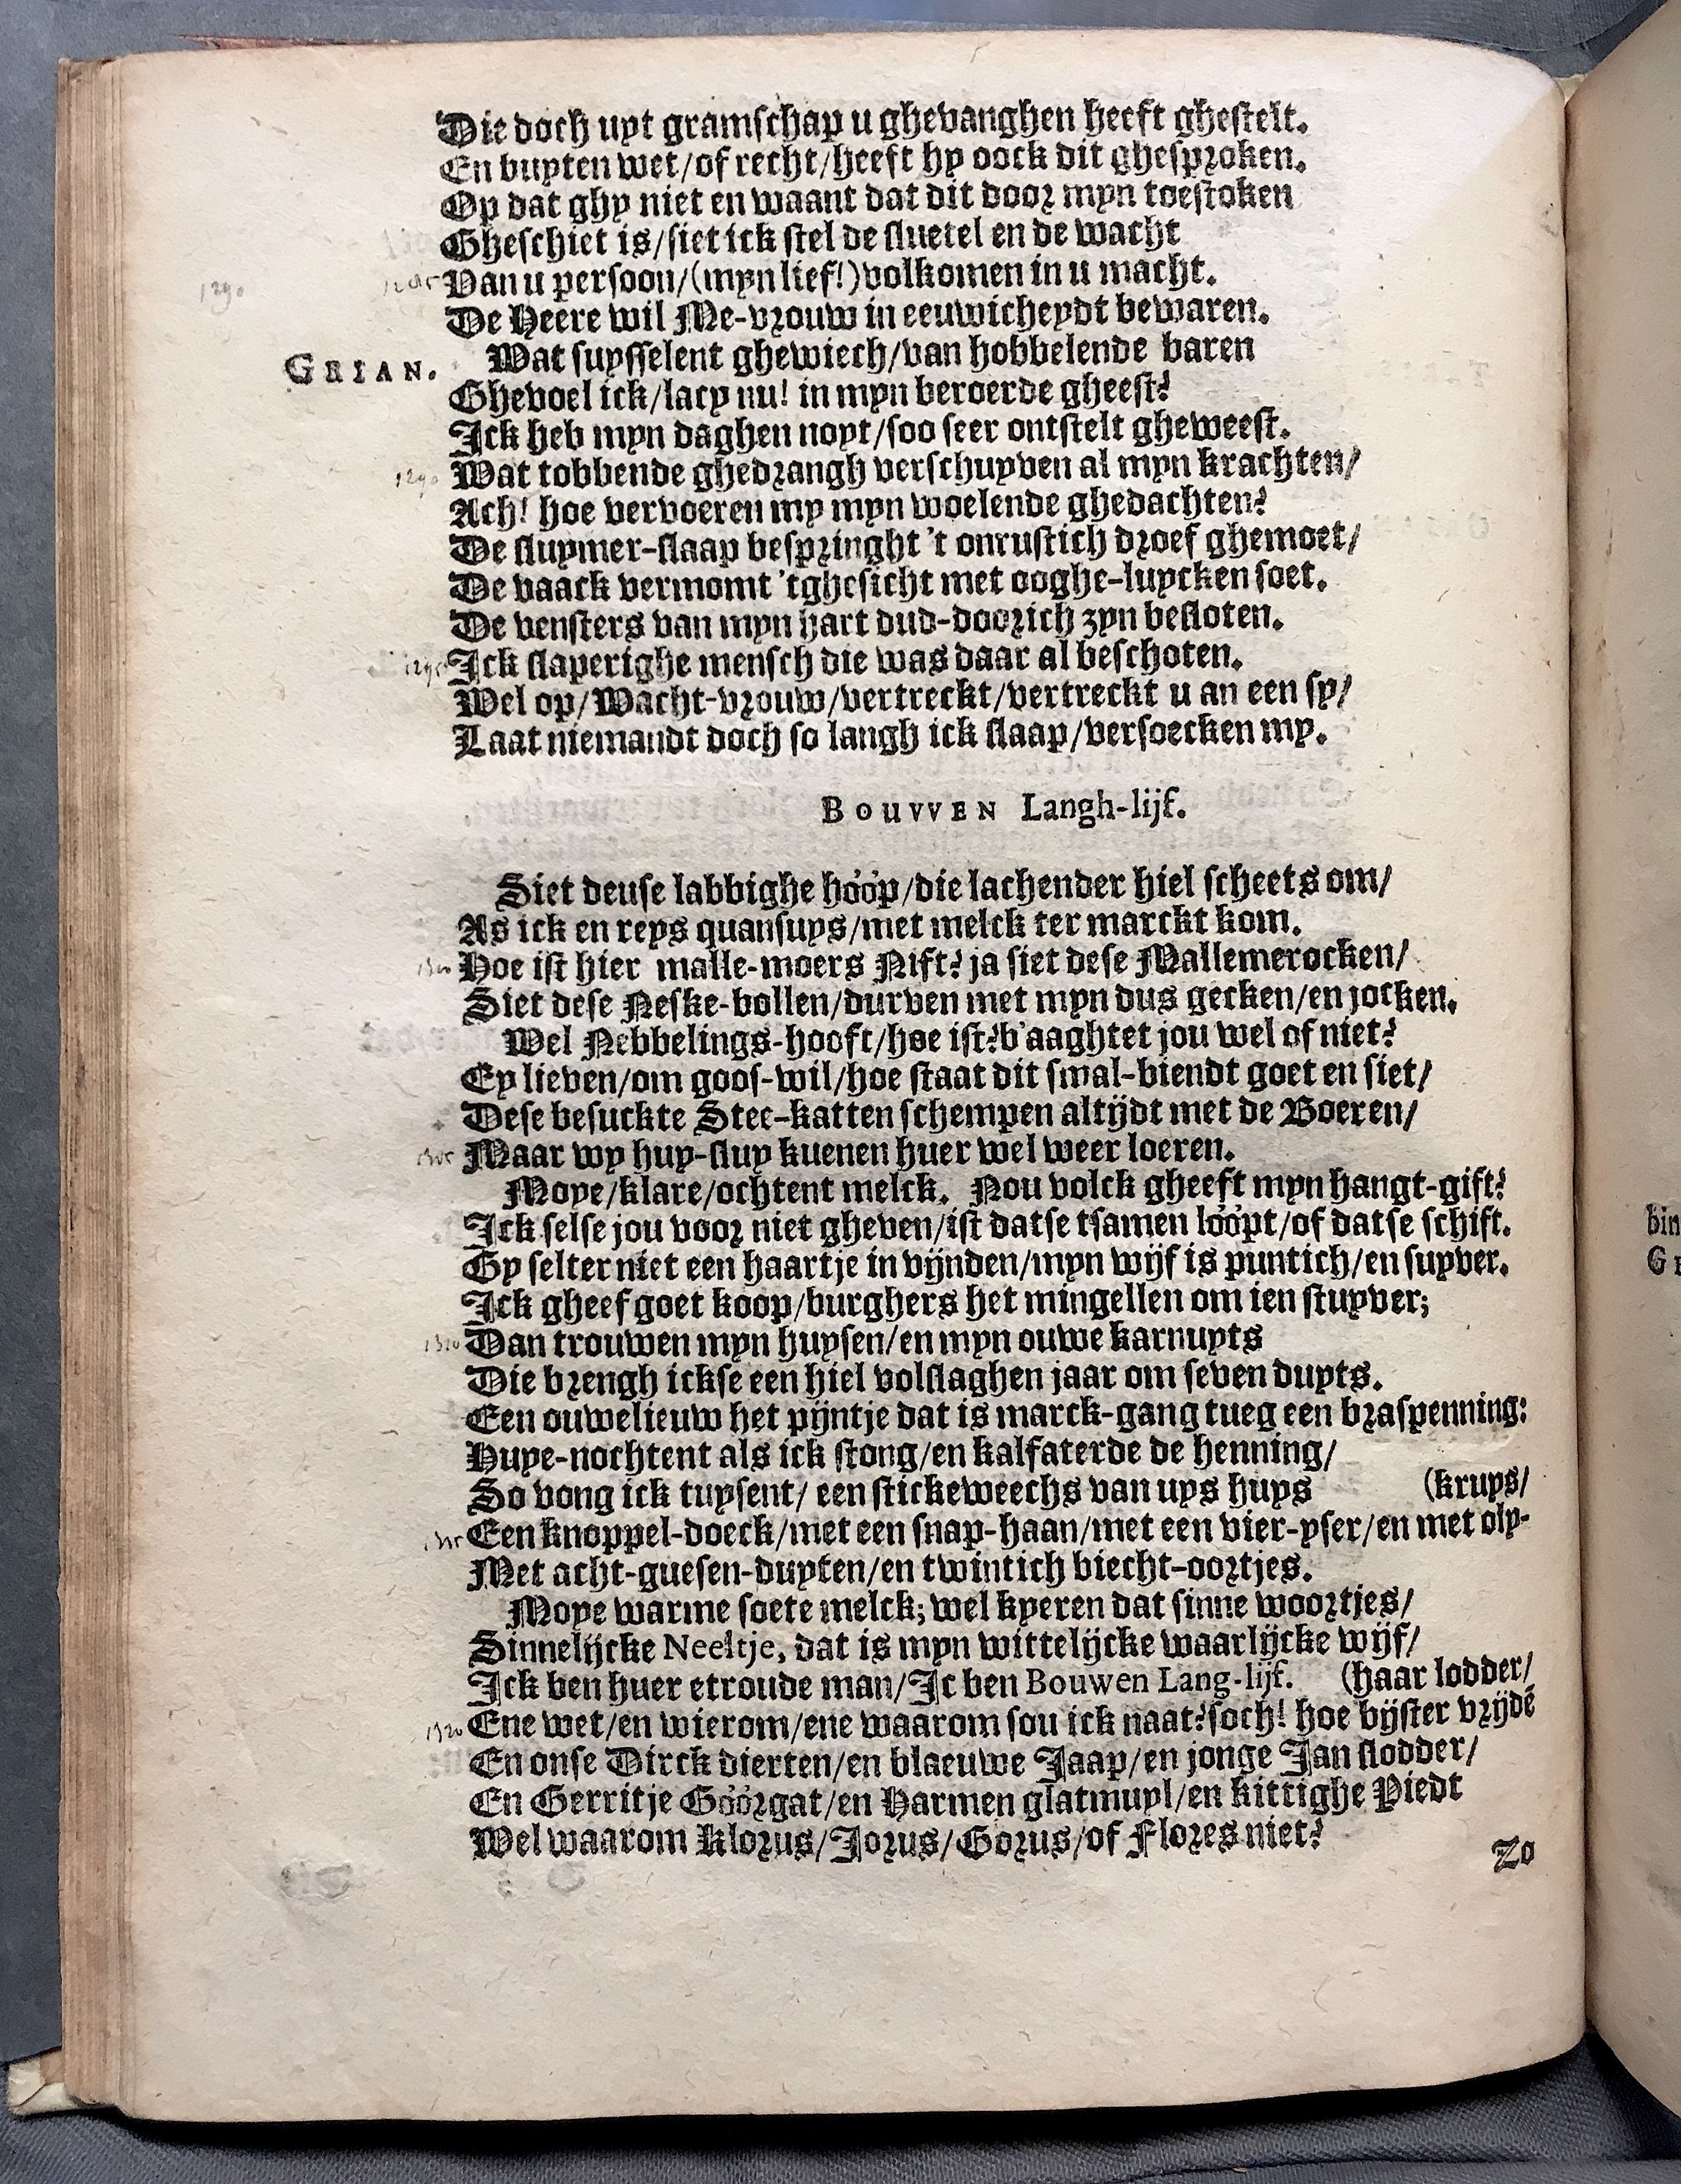 Die doch uyt gramschap u ghevanghen heeft ghestelt.
En buyten wet/of recht/heeft hy oock dit ghesproken.
Op dat ghy niet en waant dat dit door myn toestoken
Gheschiet is/siet ick stel de sluetel en de wacht
Van u persoon/(myn lief!) volkomen in u macht.
1290
De Heere wil Me-vrouw in eeuwicheydt bewaren.
GRIAN. Wat suysselent ghewiech/van hobbelende baren
Ghevoel ick/lacy nu! in myn beroerde gheest?
Ick heb myn daghen noyt/soo seer ontstelt gheweest.
1290 Wat tobbende ghedrangh verschuyven al myn krachten/
Ach! hoe vervoeren my myn woelende ghedachten?
De sluymer-slaap bespringht 't onrustich droef ghemoet/
De vaack vermomt 'tghesicht met ooghe-luycken soet.
De vensters van myn hart dud-doorich zyn besloten.
1295 Ick slaperighe mensch die was daar al beschoten.
Wel op/Wacht-vrouw/vertreckt/vertreckt u an een sy/
Laat niemandt doch so langh ick slaap/versoecken my.
BOUVVEN Langh-lijf.
Siet deuse labbighe hóóp/die lachender hiel scheets om/
As ick en reys quansuys/met melck ter marckt kom.
1300 Hoe ist hier malle-moers Nift? ja siet dese Mallemerocken/
Siet dese Neske-bollen/durven met myn dus gecken/en jocken.
Wel Nebbelings-hooft/hoe ist?b'aaghtet jou wel of niet?
Ey lieven/om goos-wil/hoe staat dit smal-biendt goet en siet/
Dese besuckte Stee-katten schempen altijdt met de Boeren/
1305 Maar wy huy-sluy kuenen huer wel weer loeren.
Moye/klare/ochtent melck. Nou volck gheeft myn hangt-gift?
Ick selse jou voor niet gheven/ist datse tsamen lóópt/of datse schift.
Gy selter niet een haartje in vijnden/myn wijf is puntich/en suyver.
Ick gheef goet koop/burghers het mingellen om ien stuyver;
1310 Dan trouwen myn huysen/en myn ouwe karnuyts
Die brengh ickse een hiel volslaghen jaar om seven duyts.
Een ouwelieuw het pijntje dat is marck-gang tueg een braspenning:
Huye-nochtent als ick stong/en kalfaterde de henning/
So vong ick tuysent/ een stickeweechs van uys huys (kruys/
1315 Een knoppel-doeck/met een snap-haan/met een vier-yser/en met oly-
Met acht-guesen-duyten/en twintich biecht-oortjes.
Moye warme soete melck; wel kyeren dat sinne woortjes/
Sinnelijcke Neeltje, dat is myn wittelijcke waarlijcke wijf/
Ick ben huer etroude man/Ic ben Bouwen Lang-lijf. (haar lodder/
1320 Ene wet/en wierom/ene waarom sou ick naat?soch! hoe bijster vrijdē
En onse Dirck dierten/en blaeuwe Jaap/en jonge Jan slodder/
En Gerritje Góórgat/en Harmen glatmuyl/en kittighe Piedt
Wel waarom Klorus/Jorus/Gorus/of Flores niet?
Zo